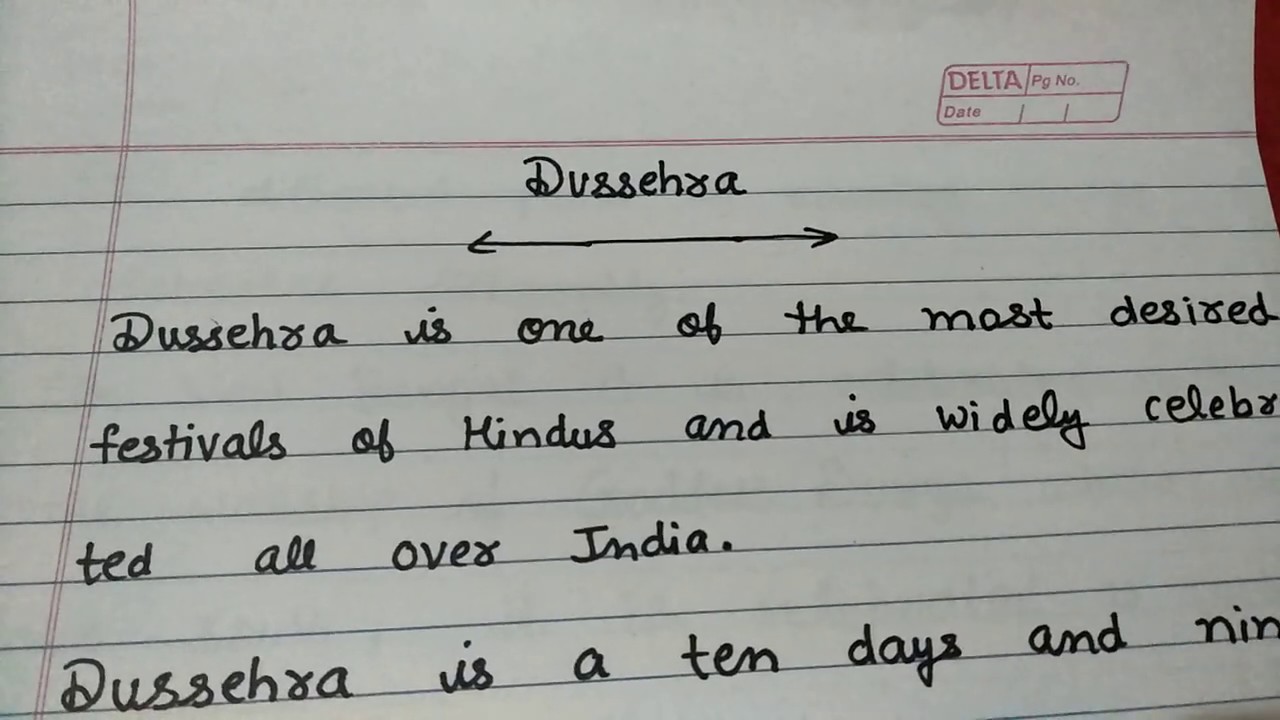 DELTA Pg No.
Date / /
Dussehra
Dussehra is one of the most desired
festivals of Hindus and is widely celebr
ted all over India.
Dussehra is a ten days and nin